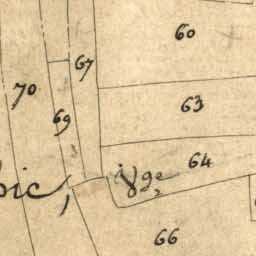 60
67
70
63
69
64
bic
66